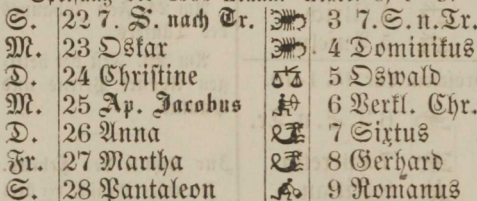 S. 22 7. S. nach Tr. 3 7. S. n. Tr.
M. 23 Oskar 4 Dominikus
D. 24 Christine 5 Oswald
M. 25 Ap. Jacobus 6 Verkl. Chr.
D. 26 Anna 7 Sixtus
Fr. 27 Martha 8 Gerhard
S. 28 Pantaleon 9 Romanus